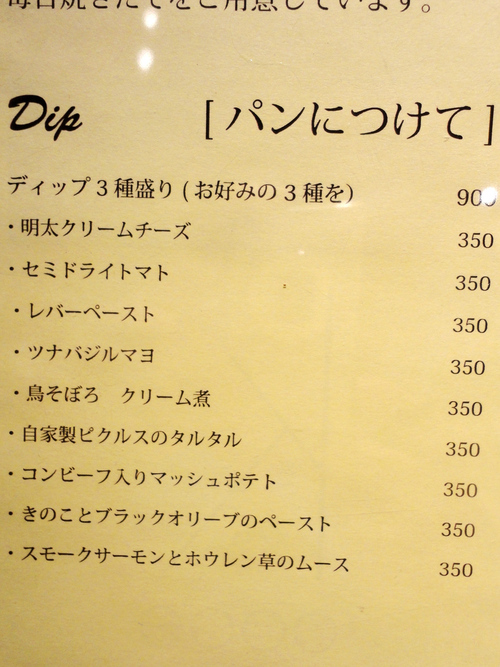 毎日焼きたてをご用意しています。
Dip [ パンにつけて ]
ディップ3種盛り(お好みの3種を) 900
・明太クリームチーズ 350
・セミドライトマト 350
・レバーペースト 350
・ツナバジルマヨ 350
・鳥そぼろ クリーム煮 350
・自家製ピクルスのタルタル 350
・コンビーフ入りマッシュポテト 350
・きのことブラックオリーブのペースト 350
・スモークサーモンとホウレン草のムース 350